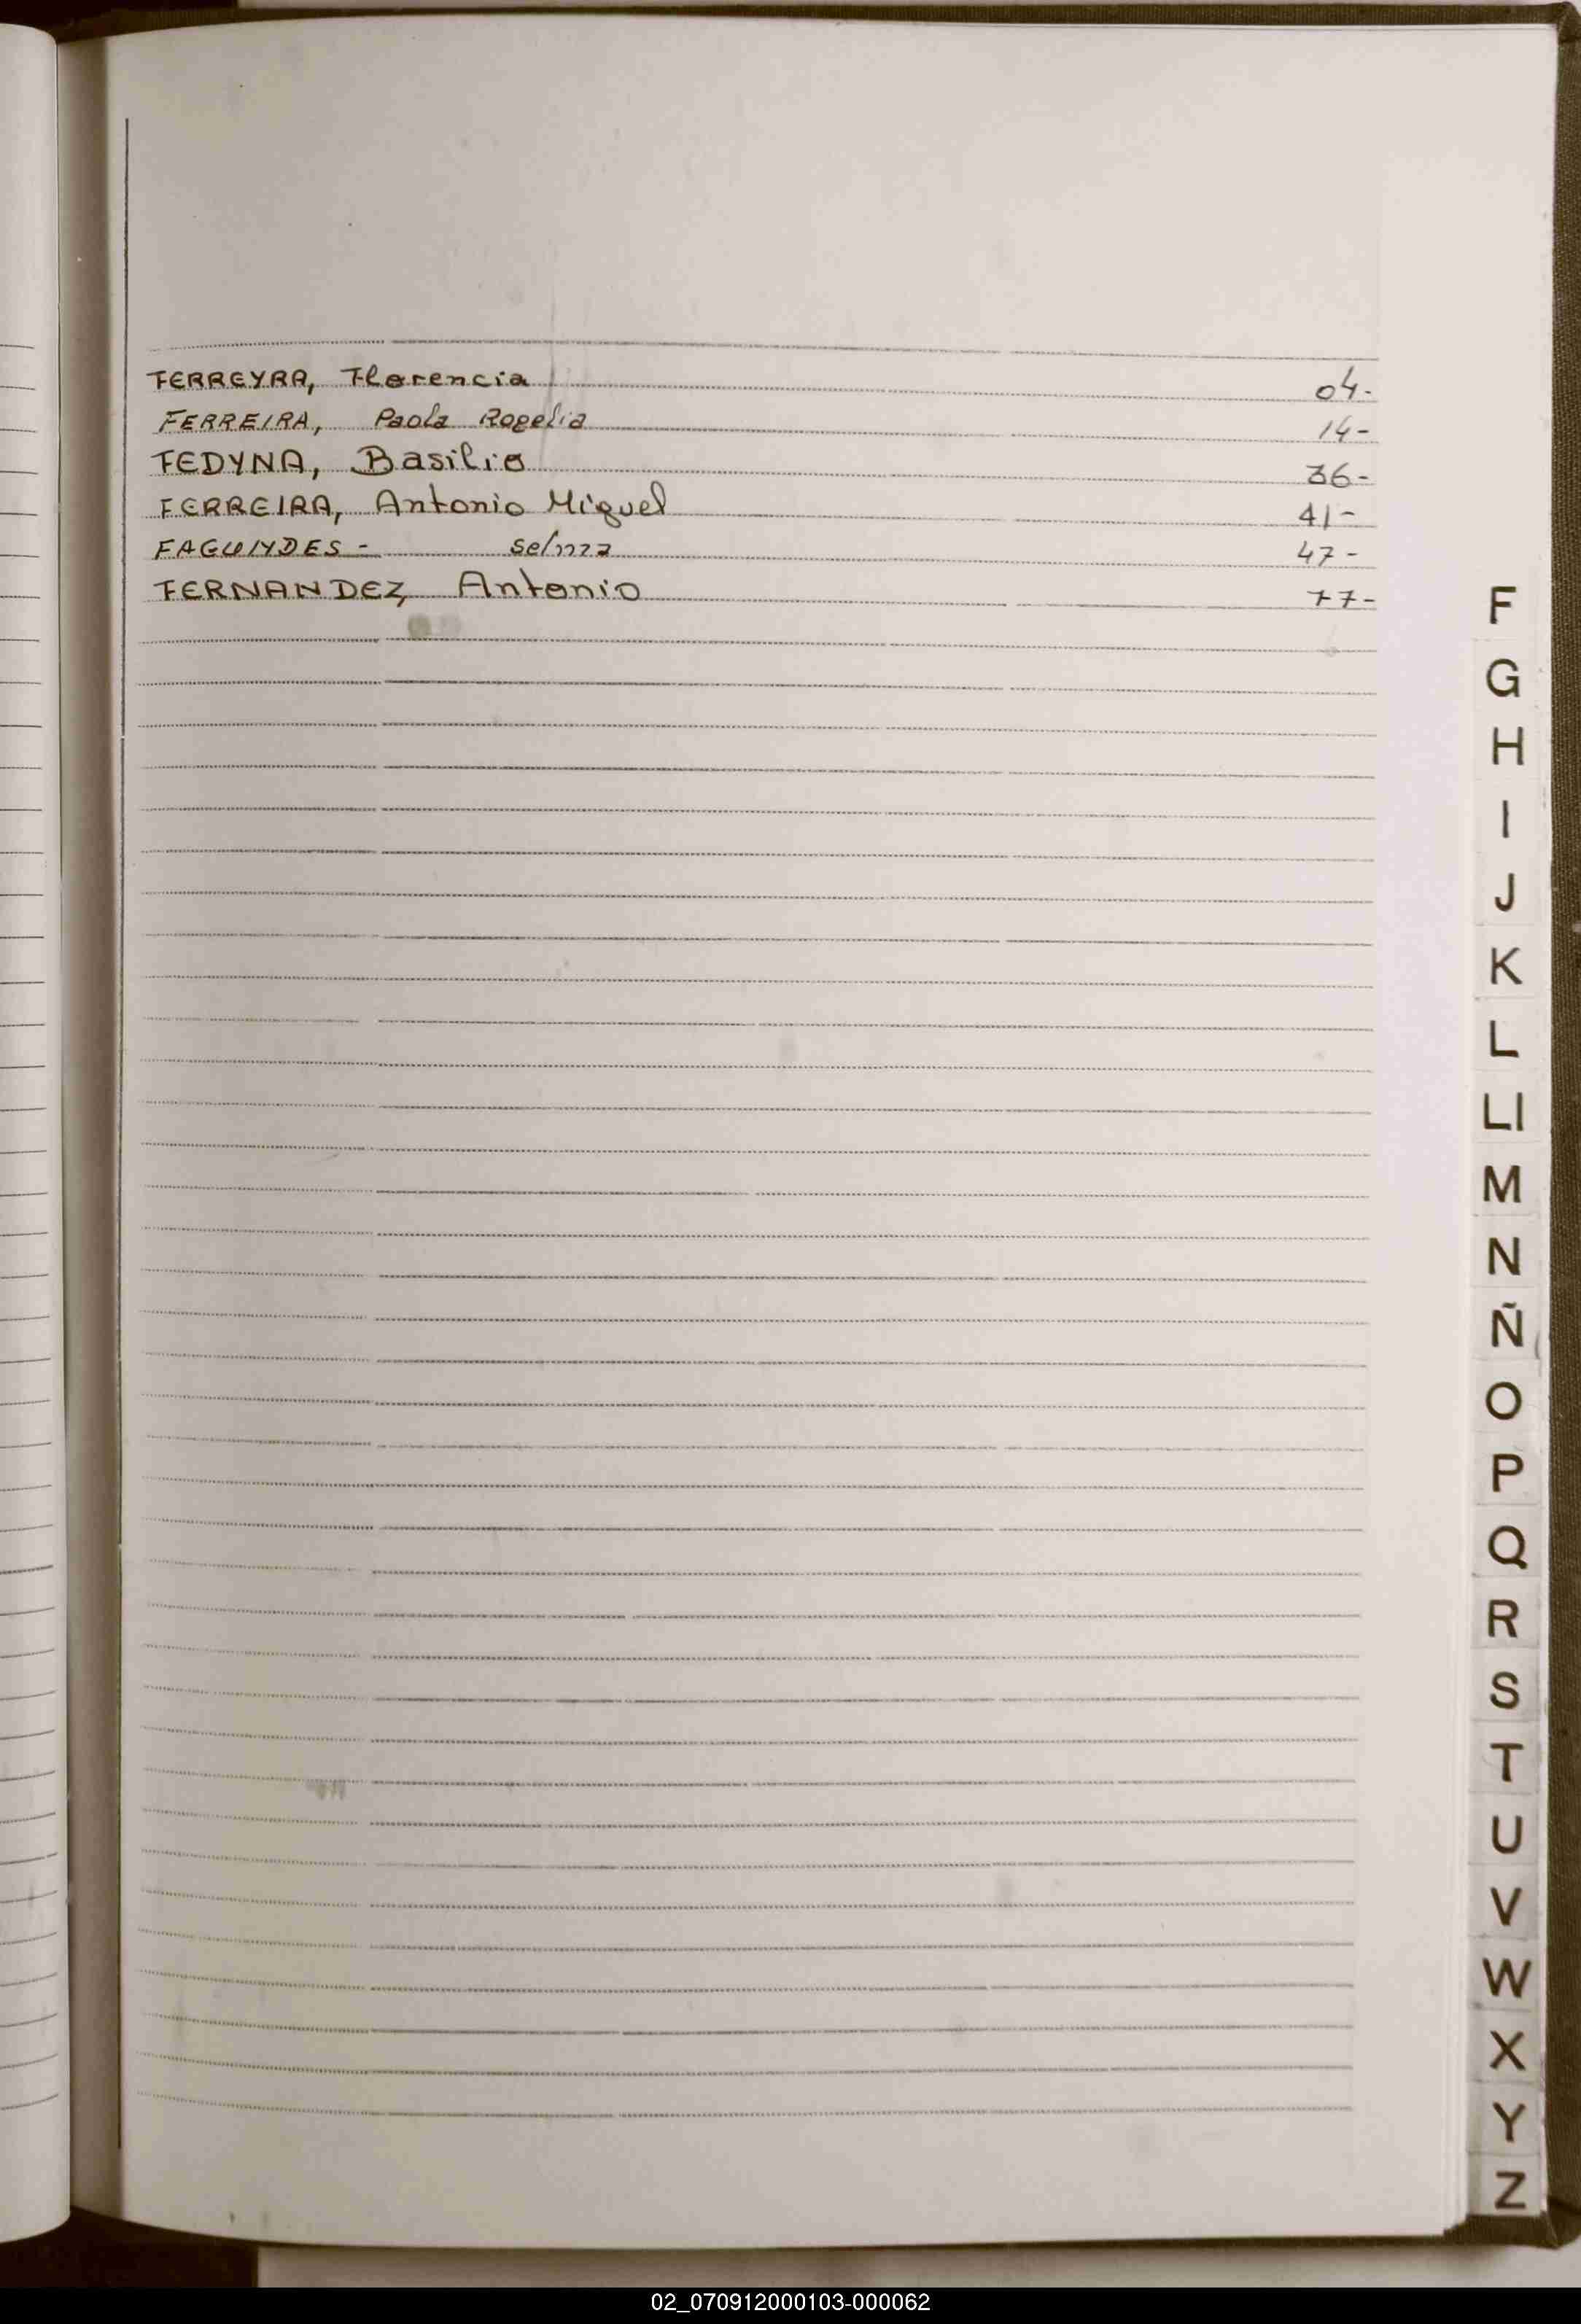 FERREYRA, Florencia 04-
FERREIRA, Paola Rogelia 14-
FEDYNA, Basilio 36-
FERREIRA, Antonio Miguel 41-
FAGUNDES- Selmza 47-
FERNANDEZ, Antonio 77-
F
G
H
I
J
K
L
Ll
M
N
Ñ
O
P
Q
R
S
T
U
V
W
X
Y
Z
02_070912000103-000062